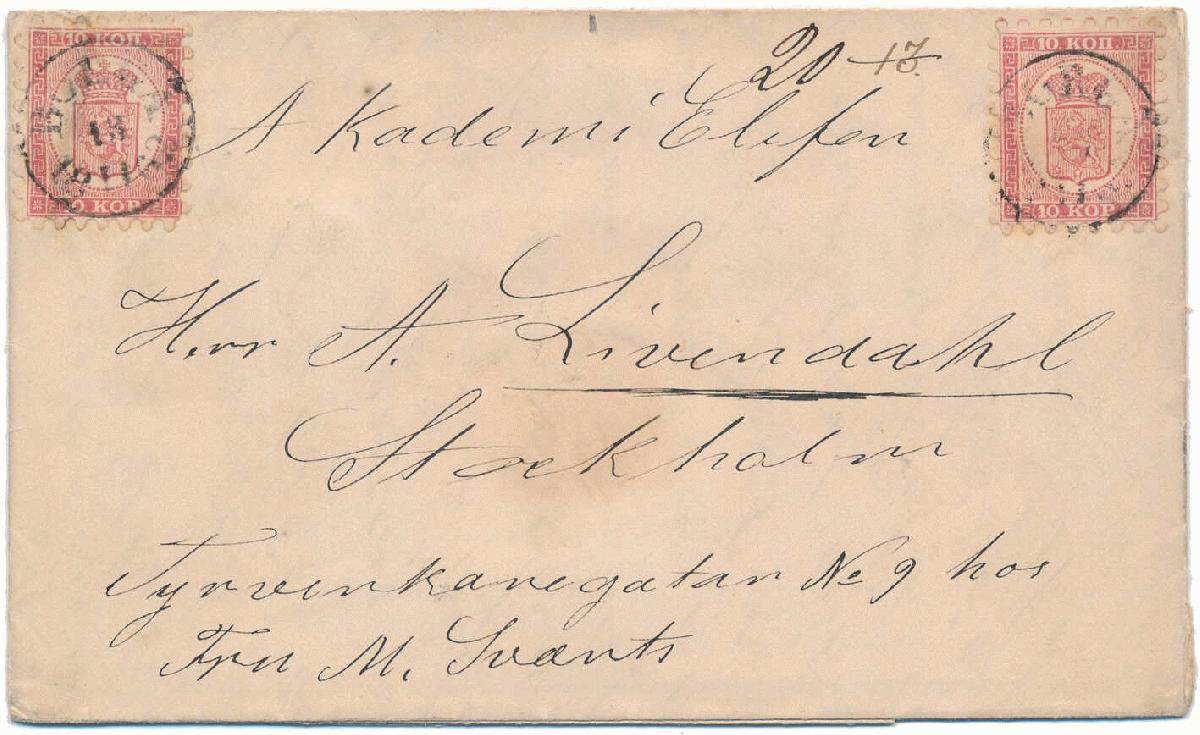 10 КОП. 10 КОП.
18
10 KOP. 10 KOP.
20 13.
Akademi Elefen
Herr A. Livendahl
Stockholm
Tyrvenkaregatan No 9 hos
Fru M. Svants